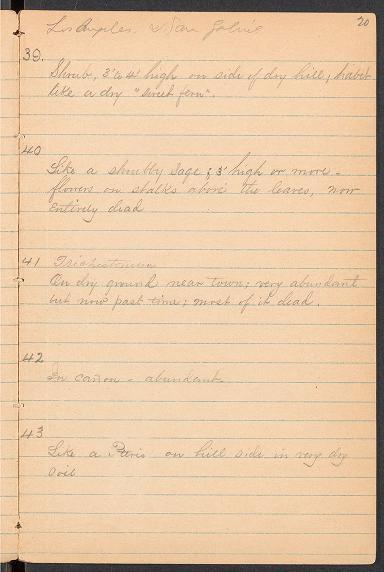 20
Los Angeles. & San Gabrie
39.
Shrub, 3' to 4' high on side of dry hill; habit
like a dry "sweet fern".
40
Like a shrubby sage; 3' high or more -
flowers on stalks above the leaves, now
entirely dead
41 Trichostema
On dry ground near town; very abundant
but now past time; most of it dead.
42
In cañon - abundant.
43
Like a Pteris on hill side in very dry
soil